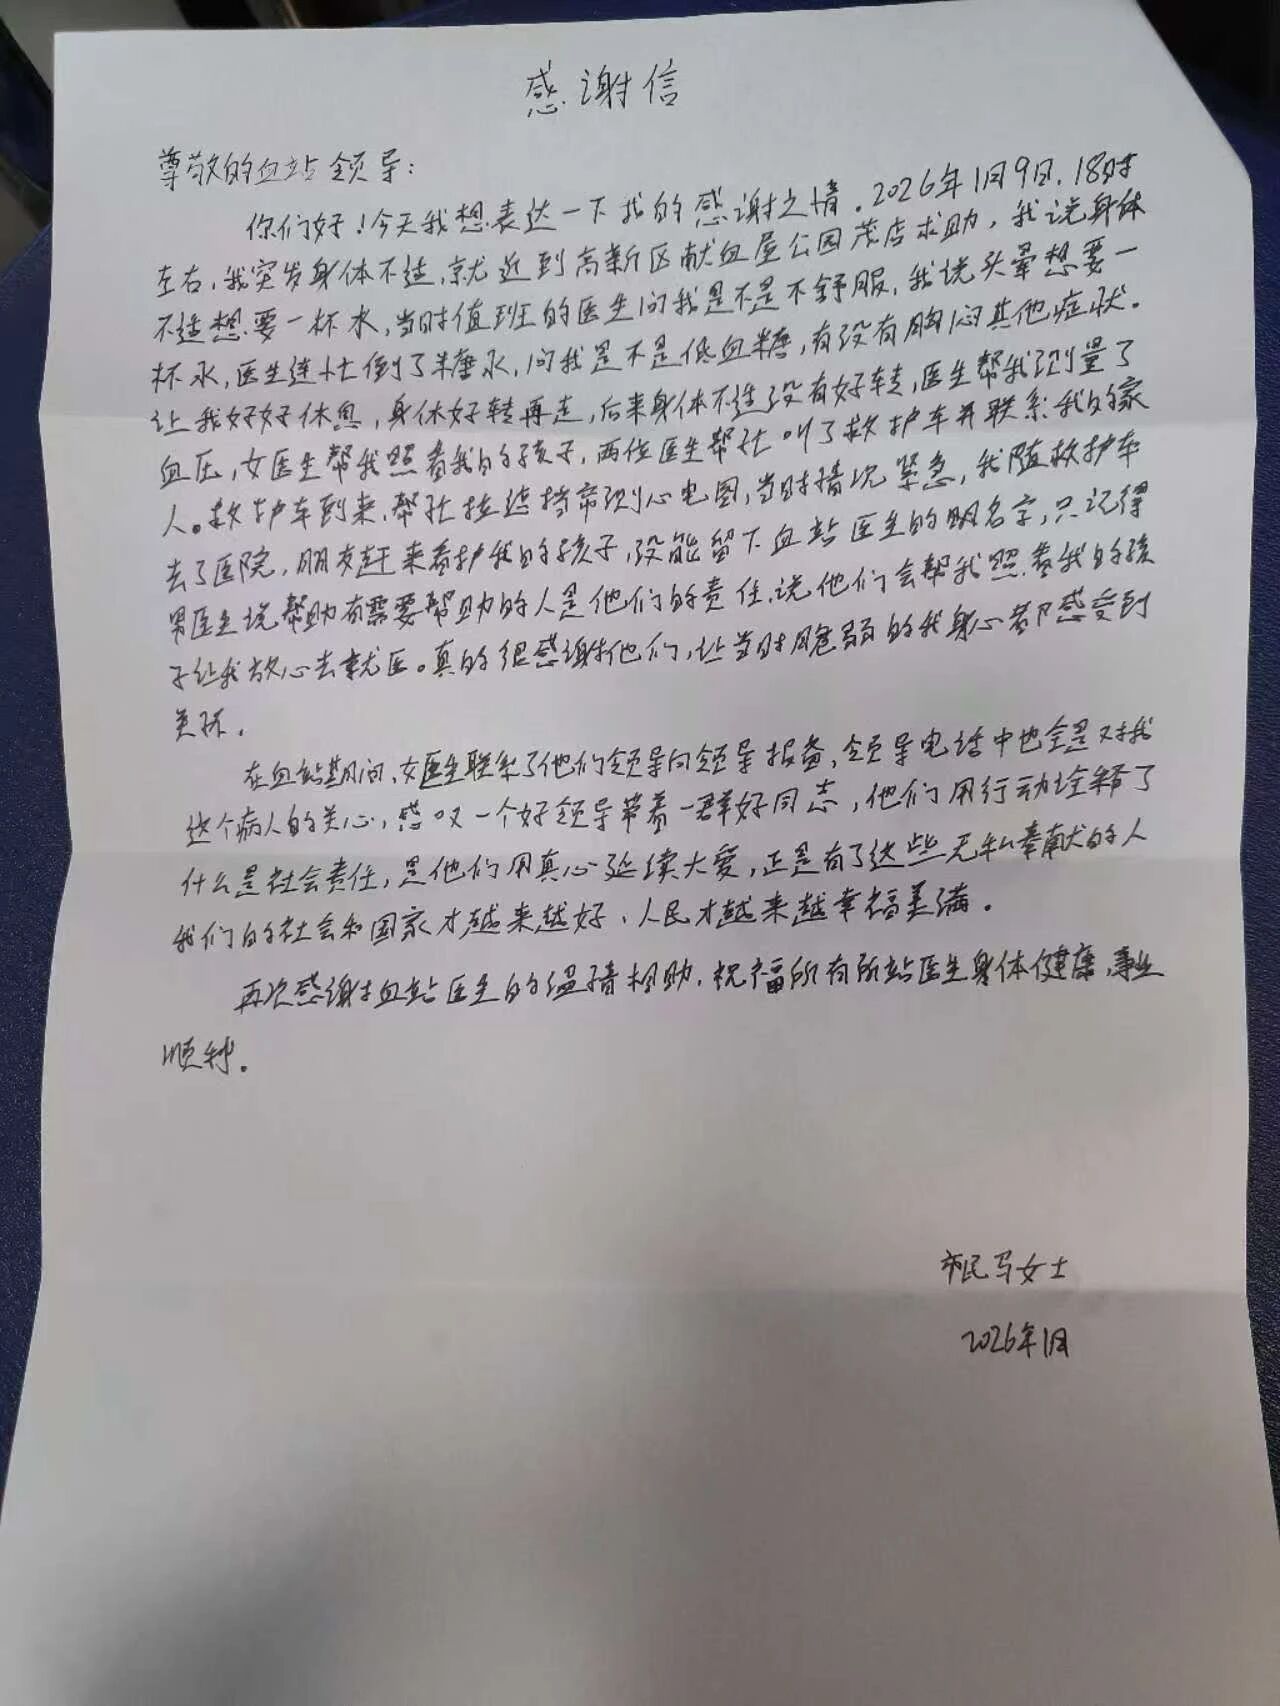 感谢信
尊敬的血站领导：
你们好！今天我想表达一下我的感谢之情。2026年1月9日，18时
左右，我突发身体不适，就近到高新区献血屋公园茂店求助，我说身体
不适想要一杯水，当时值班的医生问我是不是不舒服，我说头晕想要一
杯水，医生连忙倒了糖水，问我是不是低血糖，有没有胸闷其他症状。
让我好好休息，身体好转再走，后来身体不适没有好转，医生帮我测量了
血压，女医生帮我照看我的孩子，两位医生帮忙叫了救护车并联系我的家
人。救护车到来，帮忙拉连携带测心电图，当时情况紧急，我随救护车
去了医院，朋友赶来看护我的孩子，没能留下血站医生的名字，只记得
男医生说帮助有需要帮助的人是他们的责任，说他们会帮我照看我的孩
子让我放心去就医。真的很感谢他们，让当时脆弱的我身心都感受到
关怀。
在血站期间，女医生联系了他们领导向领导报备，领导电话中也全是对我
这个病人的关心，感叹一个好领导带着一群好同志，他们用行动诠释了
什么是社会责任，是他们用真心延续大爱，正是有了这些无私奉献的人
我们的社会和国家才越来越好、人民才越来越幸福美满。
再次感谢血站医生的温情相助，祝福所有所站医生身体健康，事业
顺利。
市民马女士
2026年1月